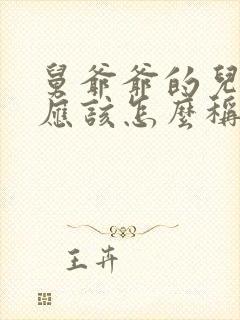 舅爺爺的兒
應該怎麼稱
王卉